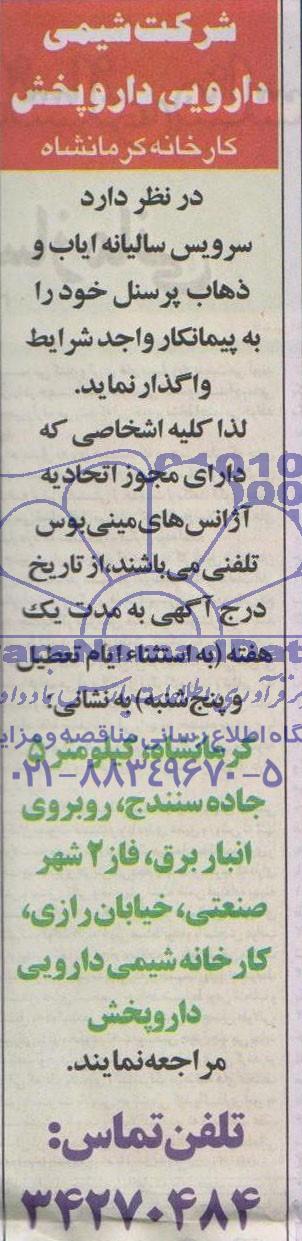 شرکت شیمی
دارویی داروپخش
کارخانه کرمانشاه
در نظر دارد
سرویس سالیانه ایاب و
ذهاب پرسنل خود را
به پیمانکار واجد شرایط
واگذار نماید.
لذا کلیه اشخاصی که
دارای مجوز اتحادیه
آژانس‌های مینی‌بوس
تلفنی می‌باشند، از تاریخ
درج آگهی به مدت یک
هفته (به استثناء ایام تعطیل
و پنج شنبه) به نشانی:
گاه اطلاع رسانی مناقصه و مزاید
کرمانشاه، کیلومتر ۵
۰۲۱-۸۸۳۴۹۶۷۰-۵
جاده سنندج، روبروی
انبار برق، فاز ۲ شهر
صنعتی، خیابان رازی،
کارخانه شیمی دارویی
داروپخش
مراجعه نمایند.
تلفن تماس:
۳۴۲۷۰۴۸۴